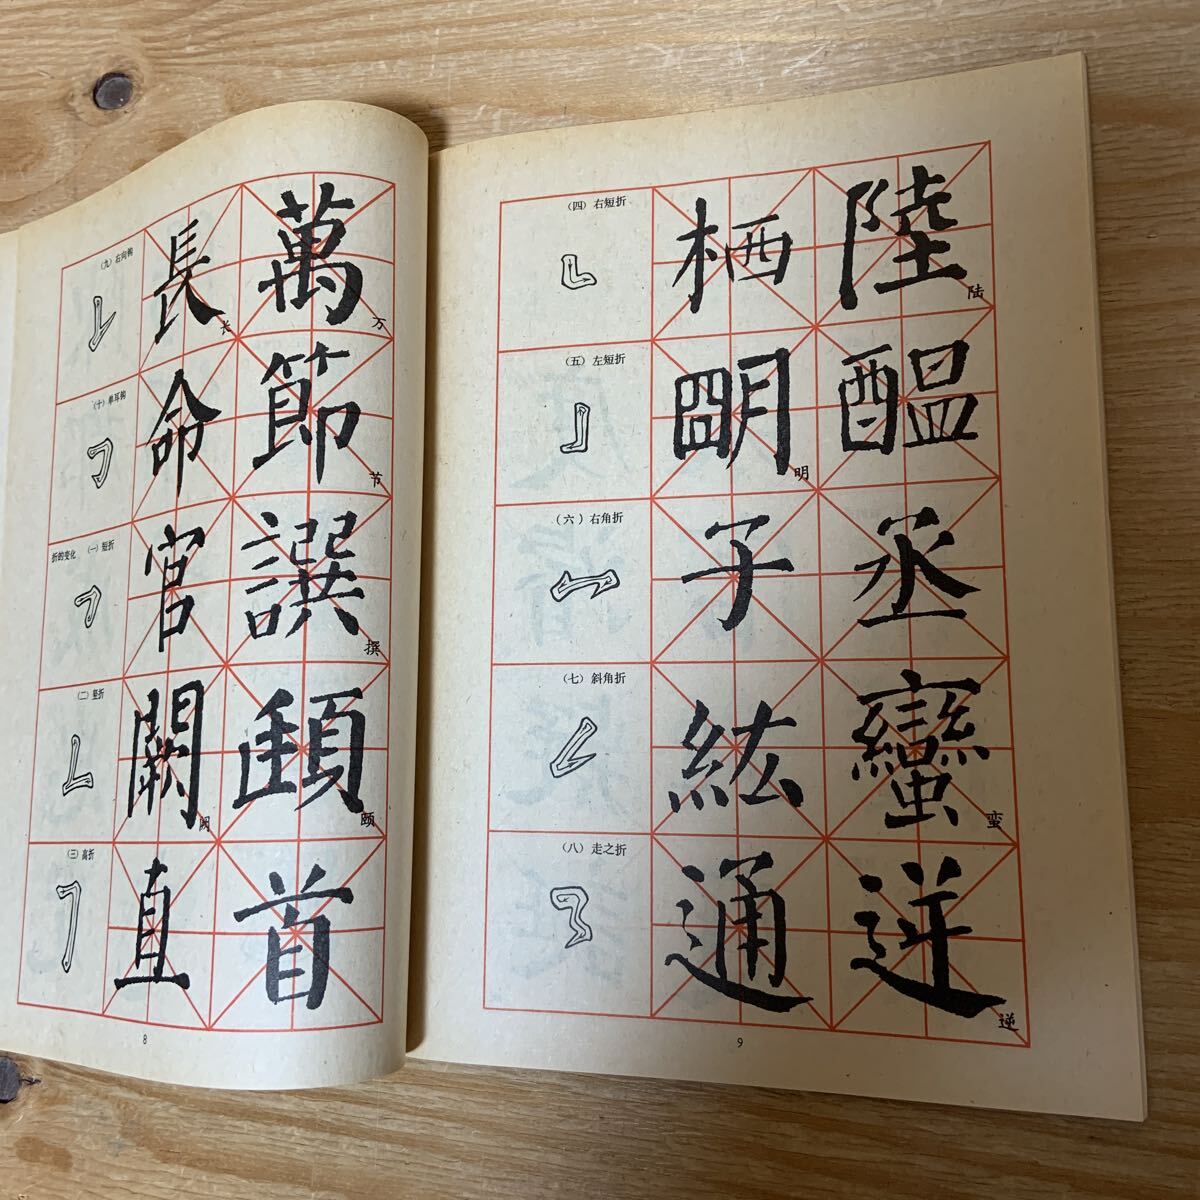 (九) 右向钩
長 长
萬 万
(十) 单耳钩
命
節 节
折的变化 (一) 短折
官
譔 撰
(二) 竖折
闕 阙
頤 颐
(三) 高折
直
首
8
(四) 右短折
栖
陸 陆
(五) 左短折
明 明
醖
(六) 右角折
子
丞
(七) 斜角折
紘
蠻 蛮
(八) 走之折
通
逆 逆
9